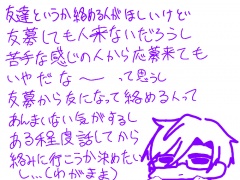 友達というか絡める人がほしいけど
友募しても人来ないだろうし
苦手な感じの人から応募来ても
いやだな〜 って思うし
友募から友になって絡める人って
あんまいない気がするし
ある程度話してから
絡みに行こうか決めたい
し…(わがまま)